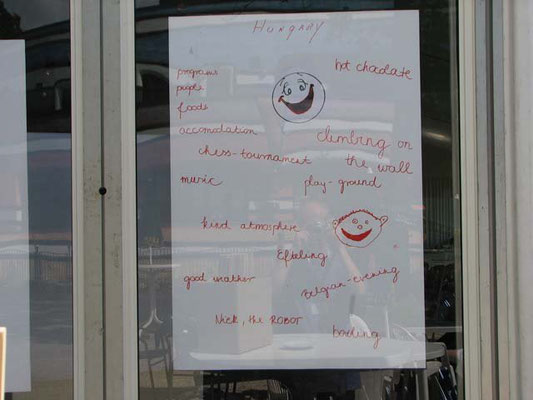 Hungary
hot chocolate
programs
people
foods
accomodation
climbing on
the wall
chess-tournament
music
play-ground
kind atmosphere
Efteling
good weather
belgian-evening
Nick, the ROBOT
bowling